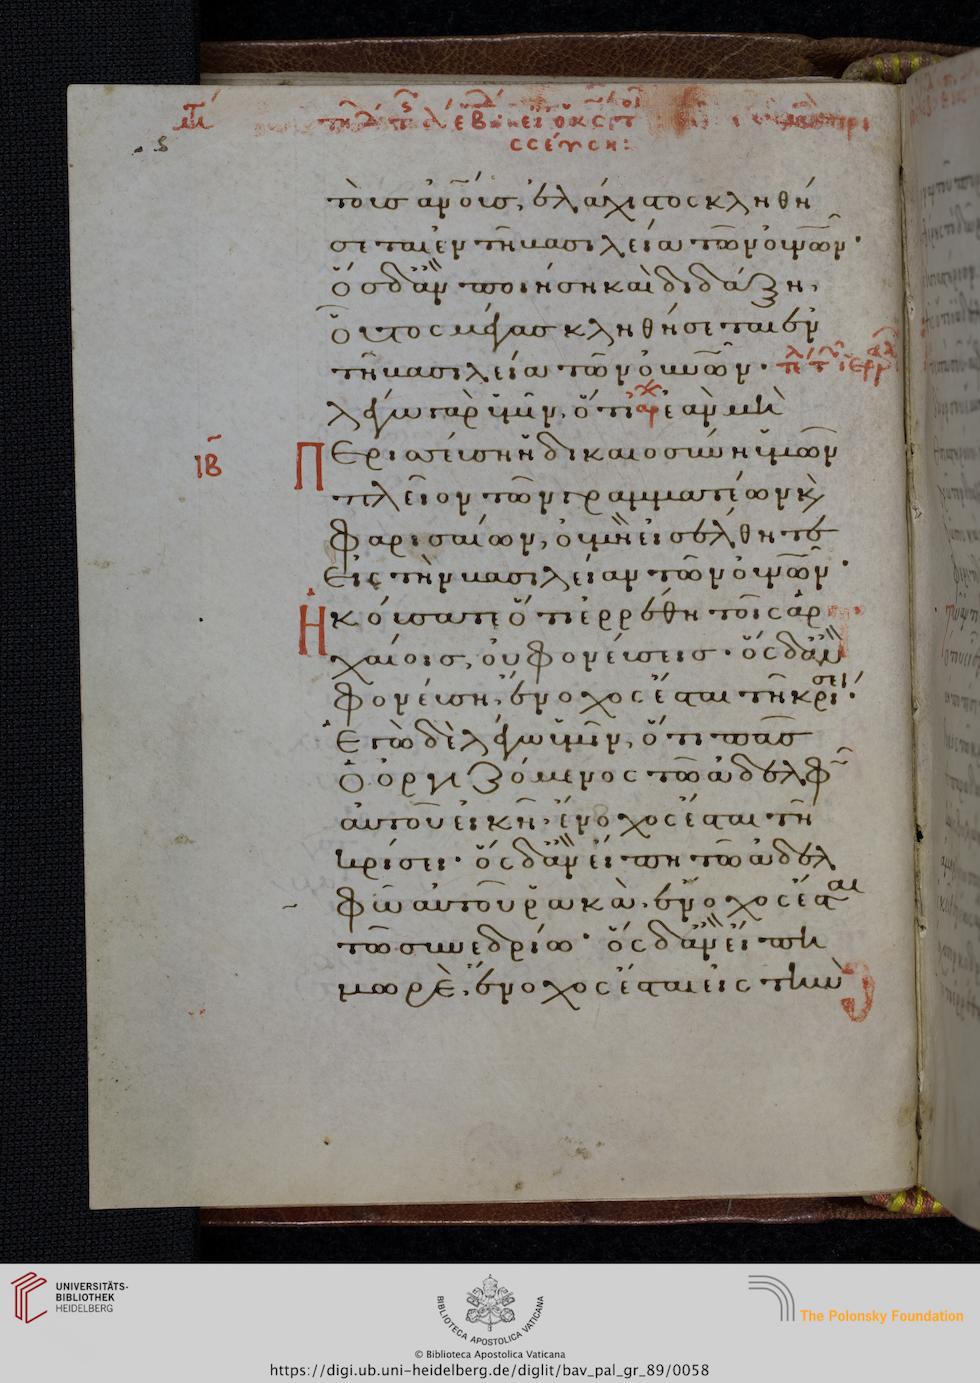 τοὺς ἀνουσ, ἐλάχιστος κληθή
σεται ἐν τῆ βασιλεία τῶν οὐνῶν·
ὅσ δ' ἂν ποιήση καὶ διδάξη,
οὗτος μέγασ κληθήσεται ἐν
τῆ βασιλεία τῶν οὐνῶν·
λέγω γὰρ ὑμῖν, ὅτι ἐὰν μὴ
ΙΒ Περισσεύση ἡ δικαιοσύνη ὑμῶν
πλεῖον τῶν γραμματέων κὲ
φαρισαίων, οὐ μὴ εἰσέλθητε
Εἰς τὴν βασιλείαν τῶν οὐνῶν·
Ἠκούσατε ὅτι ἐρρέθη τοῖς ἀρ
χαίοις, οὐ φονεύσεις· ὅς δ' ἂν
φονεύση, ἔνοχος ἔσται τῆ κρίσει·
Ἐγὼ δὲ λέγω ὑμῖν, ὅτι πᾶσ
Ὁ ὀργιζόμενος τῶ ἀδελφῶ
αὐτοῦ εἰκῆ, ἔνοχος ἔσται τῆ
κρίσει· ὅς δ' ἂν εἴπη τῶ ἀδελ
φῶ αὐτοῦ ῥακὰ, ἔνοχος ἔσται
τῶ συνεδρίω· ὅς δ' ἂν εἴπη
μωρὲ, ἔνοχος ἔσται εἰς τὴν
UNIVERSITÄTS-
BIBLIOTHEK
HEIDELBERG
BIBLIOTECA APOSTOLICA VATICANA
© Biblioteca Apostolica Vaticana
The Polonsky Foundation
https://digi.ub.uni-heidelberg.de/diglit/bav_pal_gr_89/0058